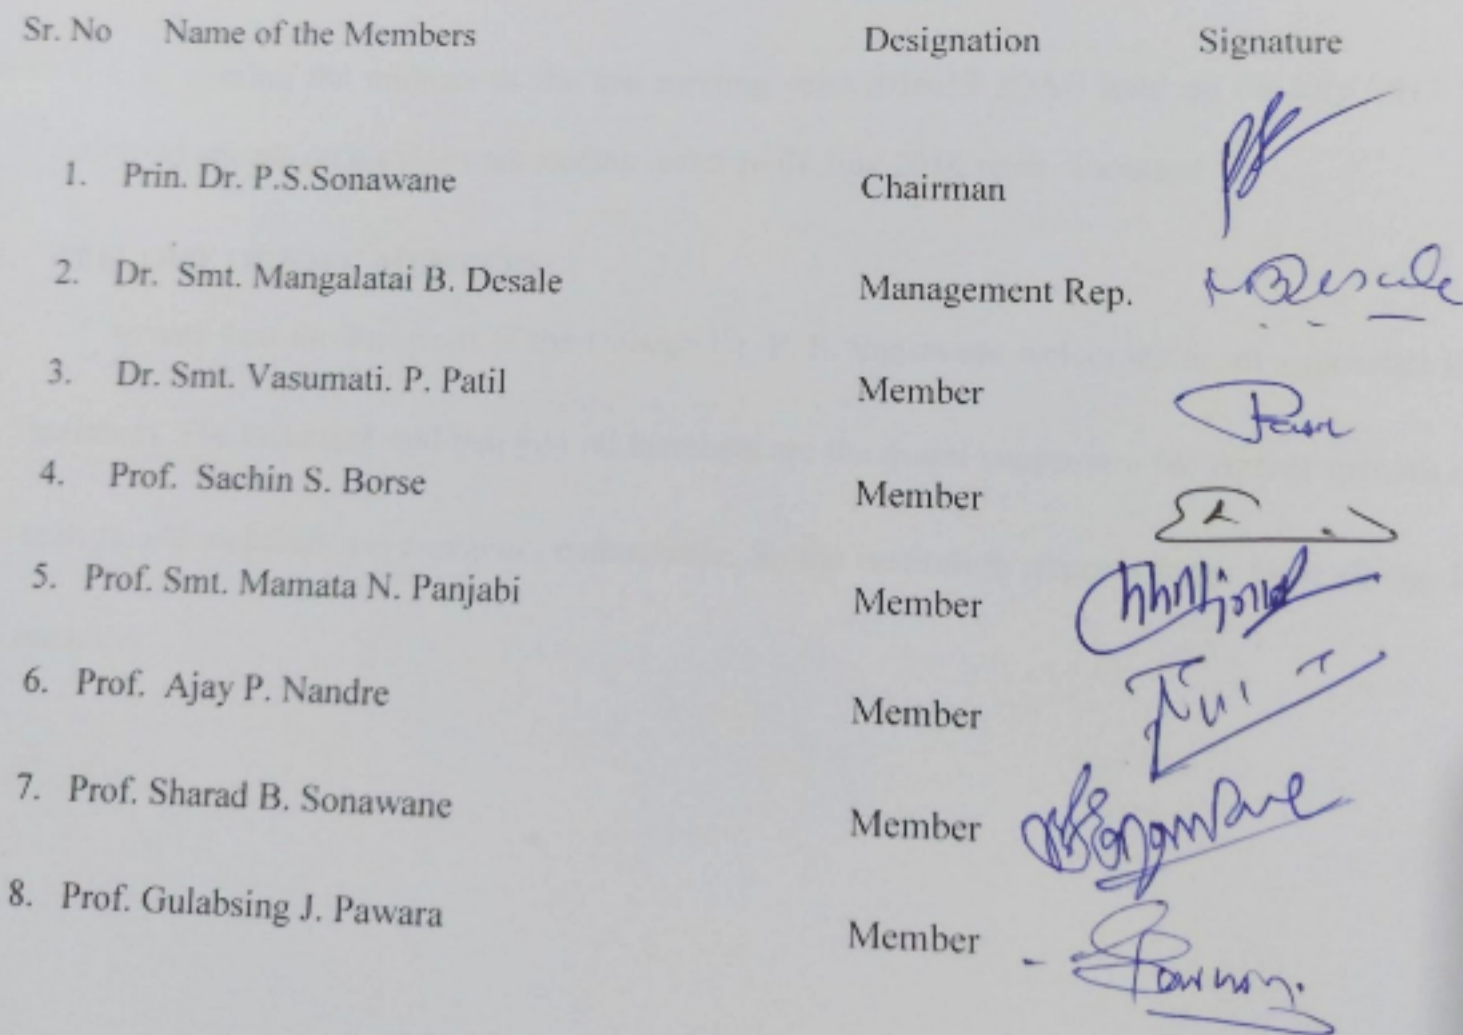 Sr. No Name of the Members Designation Signature
1. Prin. Dr. P.S.Sonawane Chairman
2. Dr. Smt. Mangalatai B. Desale Management Rep. MBDesale
3. Dr. Smt. Vasumati. P. Patil Member
4. Prof. Sachin S. Borse Member
5. Prof. Smt. Mamata N. Panjabi Member
6. Prof. Ajay P. Nandre Member
7. Prof. Sharad B. Sonawane Member
8. Prof. Gulabsing J. Pawara Member